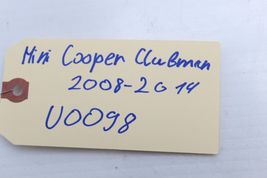 Mini Cooper Clubman
2008-2014
U0098